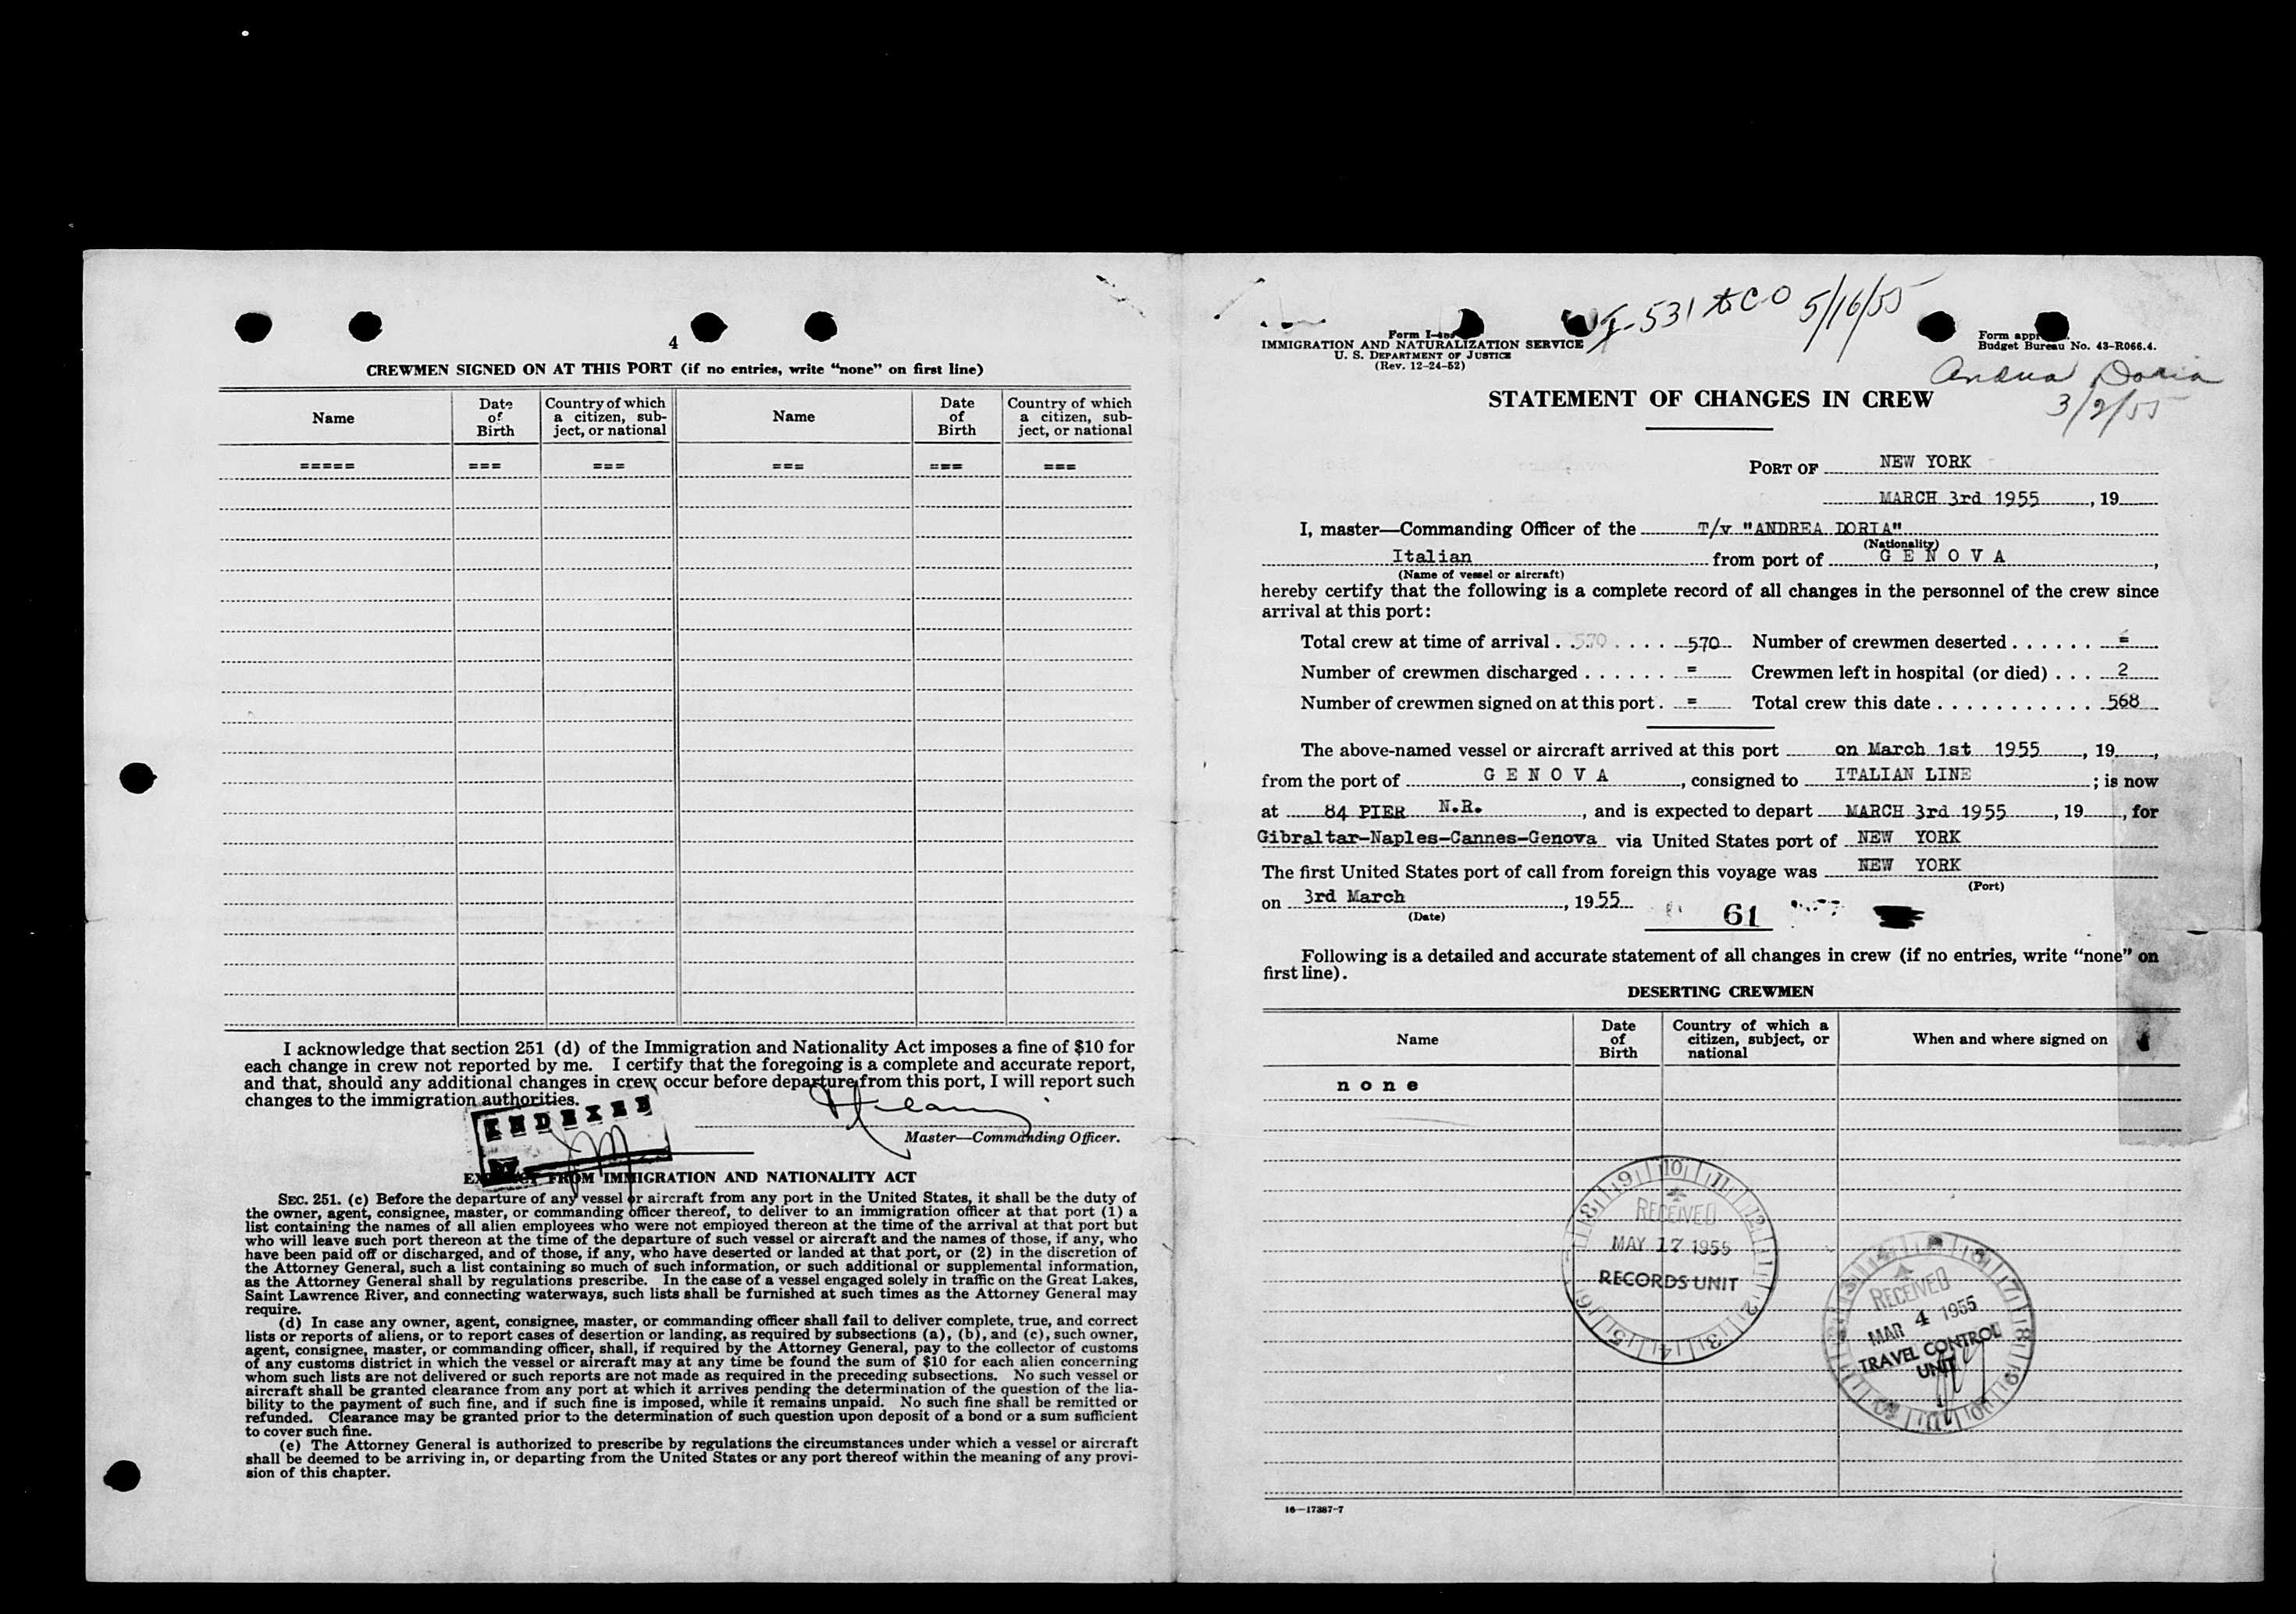 4
CREWMEN SIGNED ON AT THIS PORT (if no entries, write “none” on first line)
Name Date of Birth Country of which a citizen, subject, or national Name Date of Birth Country of which a citizen, subject, or national
===== === === === === ===
I acknowledge that section 251 (d) of the Immigration and Nationality Act imposes a fine of $10 for
each change in crew not reported by me. I certify that the foregoing is a complete and accurate report,
and that, should any additional changes in crew occur before departure from this port, I will report such
changes to the immigration authorities.
INDEXED
Master—Commanding Officer.
FROM IMMIGRATION AND NATIONALITY ACT
SEC. 251. (c) Before the departure of any vessel or aircraft from any port in the United States, it shall be the duty of
the owner, agent, consignee, master, or commanding officer thereof, to deliver to an immigration officer at that port (1) a
list containing the names of all alien employees who were not employed thereon at the time of the arrival at that port but
who will leave such port thereon at the time of the departure of such vessel or aircraft and the names of those, if any, who
have been paid off or discharged, and of those, if any, who have deserted or landed at that port, or (2) in the discretion of
the Attorney General, such a list containing so much of such information, or such additional or supplemental information,
as the Attorney General shall by regulations prescribe. In the case of a vessel engaged solely in traffic on the Great Lakes,
Saint Lawrence River, and connecting waterways, such lists shall be furnished at such times as the Attorney General may
require.
(d) In case any owner, agent, consignee, master, or commanding officer shall fail to deliver complete, true, and correct
lists or reports of aliens, or to report cases of desertion or landing, as required by subsections (a), (b), and (c), such owner,
agent, consignee, master, or commanding officer, shall, if required by the Attorney General, pay to the collector of customs
of any customs district in which the vessel or aircraft may at any time be found the sum of $10 for each alien concerning
whom such lists are not delivered or such reports are not made as required in the preceding subsections. No such vessel or
aircraft shall be granted clearance from any port at which it arrives pending the determination of the question of the lia-
bility to the payment of such fine, and if such fine is imposed, while it remains unpaid. No such fine shall be remitted or
refunded. Clearance may be granted prior to the determination of such question upon deposit of a bond or a sum sufficient
to cover such fine.
(e) The Attorney General is authorized to prescribe by regulations the circumstances under which a vessel or aircraft
shall be deemed to be arriving in, or departing from the United States or any port thereof within the meaning of any provi-
sion of this chapter.
I-531 to CO 5/16/55
Form
IMMIGRATION AND NATURALIZATION SERVICE
U. S. DEPARTMENT OF JUSTICE
(Rev. 12-24-52)
Form
Budget Bureau No. 43-R066.4.
Andrea Doria
3/2/55
STATEMENT OF CHANGES IN CREW
PORT OF NEW YORK
MARCH 3rd 1955, 19
I, master—Commanding Officer of the T/v "ANDREA DORIA"
(Nationality)
Italian from port of G E N O V A,
(Name of vessel or aircraft)
hereby certify that the following is a complete record of all changes in the personnel of the crew since
arrival at this port:
Total crew at time of arrival . . 570 . . . . 570 Number of crewmen deserted . . . . . . =
Number of crewmen discharged . . . . . . = Crewmen left in hospital (or died) . . . 2
Number of crewmen signed on at this port . = Total crew this date . . . . . . . . . . . . 568
The above-named vessel or aircraft arrived at this port on March 1st 1955, 19,
from the port of G E N O V A, consigned to ITALIAN LINE; is now
at 84 PIER N.R., and is expected to depart MARCH 3rd 1955, 19, for
Gibraltar-Naples-Cannes-Genova via United States port of NEW YORK
The first United States port of call from foreign this voyage was NEW YORK
(Port)
on 3rd March, 1955
(Date)
61
Following is a detailed and accurate statement of all changes in crew (if no entries, write “none” on
first line).
DESERTING CREWMEN
Name Date of Birth Country of which a citizen, subject, or national When and where signed on
n o n e
RECEIVED
MAY 17 1955
RECORDS UNIT
RECEIVED
MAR 4 1955
TRAVEL CONTROL
UNIT
16—17387-7